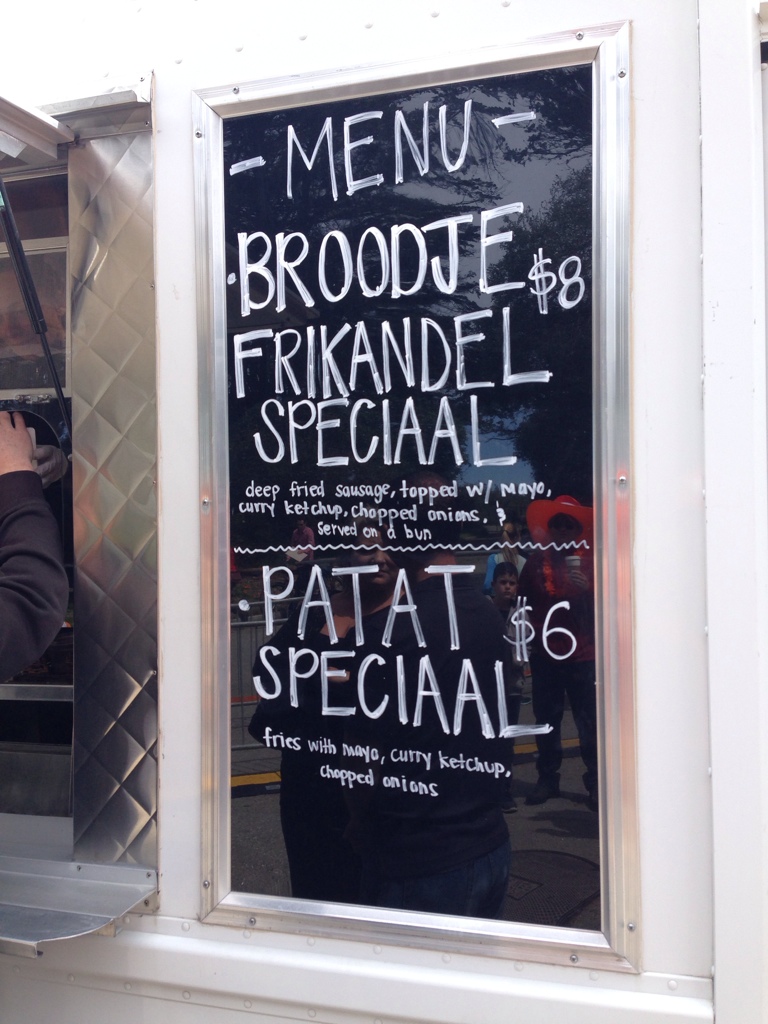 - MENU -
· BROODJE $8
FRIKANDEL
SPECIAAL
deep fried sausage, topped w/ mayo,
curry ketchup, chopped onions. &
served on a bun
· PATAT $6
SPECIAAL
fries with mayo, curry ketchup,
chopped onions